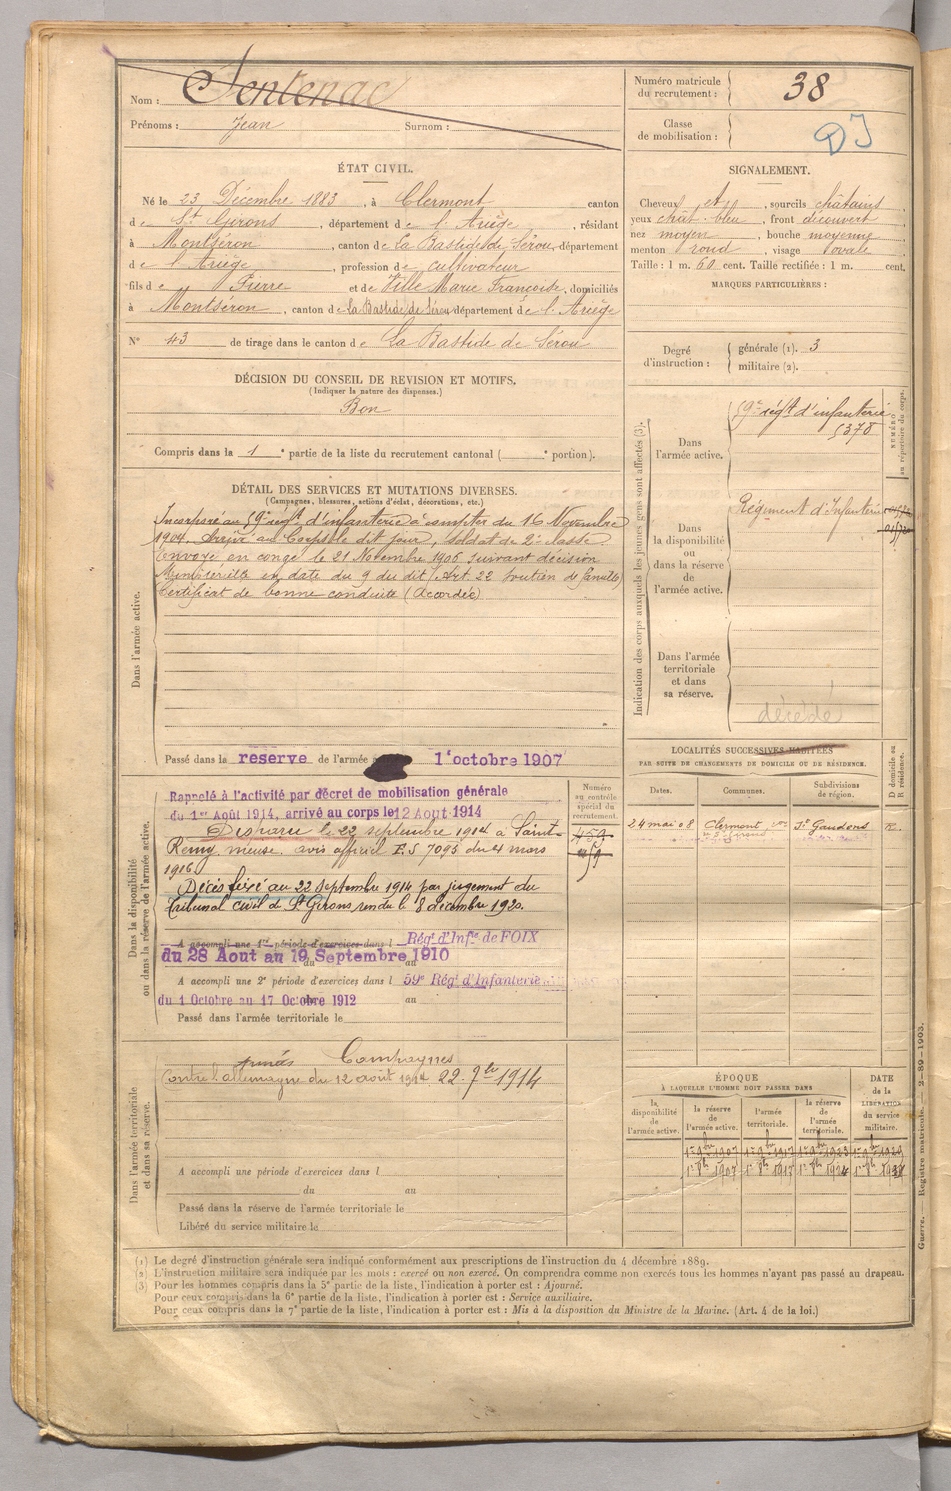 Nom : Sentenac
Prénoms : Jean Surnom :
Numéro matricule du recrutement : 38
Classe de mobilisation :
DJ
ÉTAT CIVIL.
Né le 23 Décembre 1883, à Clermont canton
de St Girons, département de l'Ariège, résidant
à Montséron, canton de La Bastide de Sérou, département
de l'Ariège, profession de cultivateur
fils de Pierre et de Ville Marie Françoise, domiciliés
à Montséron, canton de la Bastide de Sérou département de l'Ariège
N° 43 de tirage dans le canton de La Bastide de Sérou
SIGNALEMENT.
Cheveux et, sourcils châtains
yeux chât. bleu, front découvert
nez moyen, bouche moyenne
menton rond, visage ovale
Taille : 1 m. 60 cent. Taille rectifiée : 1 m. cent.
MARQUES PARTICULIÈRES :
Degré d'instruction : générale (1). 3
militaire (2).
DÉCISION DU CONSEIL DE REVISION ET MOTIFS.
(Indiquer la nature des dispenses.)
Bon
Compris dans la 1e partie de la liste du recrutement cantonal ( e portion).
DÉTAIL DES SERVICES ET MUTATIONS DIVERSES.
(Campagnes, blessures, actions d'éclat, décorations, etc.)
Dans l'armée active.
Incorporé au 59e régt d'infanterie à compter du 16 Novembre
1904. Arrivé au Corps le dit jour, soldat de 2e classe.
Envoyé en congé le 21 Novembre 1906 suivant décision
Ministérielle en date du 9 du dit (Art. 22 soutien de famille)
Certificat de bonne conduite (Accordé)
Passé dans la reserve de l'armée 1er octobre 1907
Indication des corps auxquels les jeunes gens sont affectés (3).
NUMÉRO au répertoire du corps.
Dans l'armée active.
59e régt d'infanterie
5378
Dans la disponibilité ou dans la réserve de l'armée active.
Régiment d'Infanterie
Dans l'armée territoriale et dans sa réserve.
décédé
LOCALITÉS SUCCESSIVES HABITÉES
PAR SUITE DE CHANGEMENTS DE DOMICILE OU DE RÉSIDENCE.
Dates. Communes. Subdivisions de région. D domicile ou R résidence.
24 mai 08 Clermont St Gaudens R.
Dans la disponibilité ou dans la réserve de l'armée active.
Numéro au contrôle spécial du recrutement.
Rappelé à l'activité par décret de mobilisation générale
du 1er Août 1914, arrivé au corps le 12 Aout 1914
Disparu le 22 septembre 1914 à Saint-
Remy meuse avis officiel F.S 7095 du 4 mars
1916
Décès fixé au 22 Septembre 1914 par jugement du
Tribunal civil de St Girons, rendu le 8 décembre 1920.
A accompli une 1re période d'exercices dans l Régt d'Infie de FOIX
du 28 Aout au 19 Septembre 1910
A accompli une 2e période d'exercices dans l 59e Régt d'Infanterie
du 1 Octobre au 17 Octobre 1912 au
Passé dans l'armée territoriale le
Dans l'armée territoriale et dans sa réserve.
Campagnes
Contre l'allemagne du 12 août 1914 22 7bre 1914
A accompli une période d'exercices dans l
du au
Passé dans la réserve de l'armée territoriale le
Libéré du service militaire le
ÉPOQUE
À LAQUELLE L'HOMME DOIT PASSER DANS
DATE de la LIBÉRATION du service militaire.
la disponibilité de l'armée active. la réserve de l'armée active. l'armée territoriale. la réserve de l'armée territoriale.
Guerre. — Registre matricule. — 2-89-1903.
(1) Le degré d'instruction générale sera indiqué conformément aux prescriptions de l'instruction du 4 décembre 1889.
(2) L'instruction militaire sera indiquée par les mots : exercé ou non exercé. On comprendra comme non exercés tous les hommes n'ayant pas passé au drapeau.
(3) Pour les hommes compris dans la 5e partie de la liste, l'indication à porter est : Ajourné.
Pour ceux compris dans la 6e partie de la liste, l'indication à porter est : Service auxiliaire.
Pour ceux compris dans la 7e partie de la liste, l'indication à porter est : Mis à la disposition du Ministre de la Marine. (Art. 4 de la loi.)